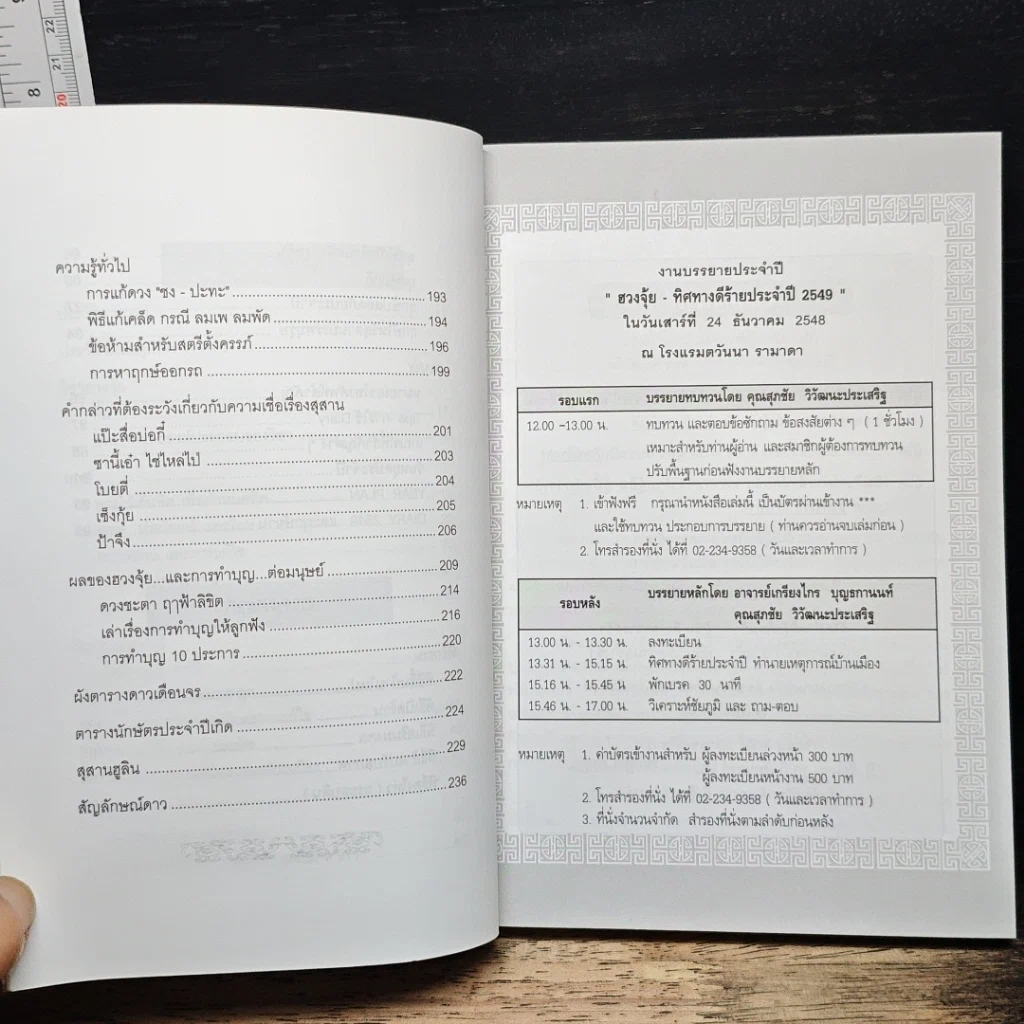 9
22
21
8
20
ความรู้ทั่วไป
การแก้ดวง "ชง - ปะทะ" 193
พิธีแก้เคล็ด กรณี ลมเพ ลมพัด 194
ข้อห้ามสำหรับสตรีตั้งครรภ์ 196
การหาฤกษ์ออกรถ 199
คำกล่าวที่ต้องระวังเกี่ยวกับความเชื่อเรื่องสุสาน
แป๊ะสื่อบ่อกี๋ 201
ซานี้เอ๋า ไซ่ไหล่ไป๋ 203
โบยตี่ 204
เช็งกุ้ย 205
ป้าจึง 206
ผลของฮวงจุ้ย...และการทำบุญ...ต่อมนุษย์ 209
ดวงชะตา ฤๅฟ้าลิขิต 214
เล่าเรื่องการทำบุญให้ลูกฟัง 216
การทำบุญ 10 ประการ 220
ผังตารางดาวเดือนจร 222
ตารางนักษัตรประจำปีเกิด 224
สุสานฮูลิน 229
สัญลักษณ์ดาว 236
งานบรรยายประจำปี
" ฮวงจุ้ย - ทิศทางดีร้ายประจำปี 2549 "
ในวันเสาร์ที่ 24 ธันวาคม 2548
ณ โรงแรมตวันนา รามาดา
รอบแรก บรรยายทบทวนโดย คุณสุภชัย วิวัฒนะประเสริฐ
12.00 -13.00 น. ทบทวน และตอบข้อซักถาม ข้อสงสัยต่าง ๆ ( 1 ชั่วโมง )
เหมาะสำหรับท่านผู้อ่าน และสมาชิกผู้ต้องการทบทวน
ปรับพื้นฐานก่อนฟังงานบรรยายหลัก
หมายเหตุ 1. เข้าฟังฟรี กรุณานำหนังสือเล่มนี้ เป็นบัตรผ่านเข้างาน ***
และใช้ทบทวน ประกอบการบรรยาย ( ท่านควรอ่านจบเล่มก่อน )
2. โทรสำรองที่นั่ง ได้ที่ 02-234-9358 ( วันและเวลาทำการ )
รอบหลัง บรรยายหลักโดย อาจารย์เกรียงไกร บุญธกานนท์
คุณสุภชัย วิวัฒนะประเสริฐ
13.00 น. - 13.30 น. ลงทะเบียน
13.31 น. - 15.15 น. ทิศทางดีร้ายประจำปี ทำนายเหตุการณ์บ้านเมือง
15.16 น. - 15.45 น พักเบรค 30 นาที
15.46 น. - 17.00 น. วิเคราะห์ชัยภูมิ และ ถาม-ตอบ
หมายเหตุ 1. ค่าบัตรเข้างานสำหรับ ผู้ลงทะเบียนล่วงหน้า 300 บาท
ผู้ลงทะเบียนหน้างาน 500 บาท
2. โทรสำรองที่นั่ง ได้ที่ 02-234-9358 ( วันและเวลาทำการ )
3. ที่นั่งจำนวนจำกัด สำรองที่นั่งตามลำดับก่อนหลัง